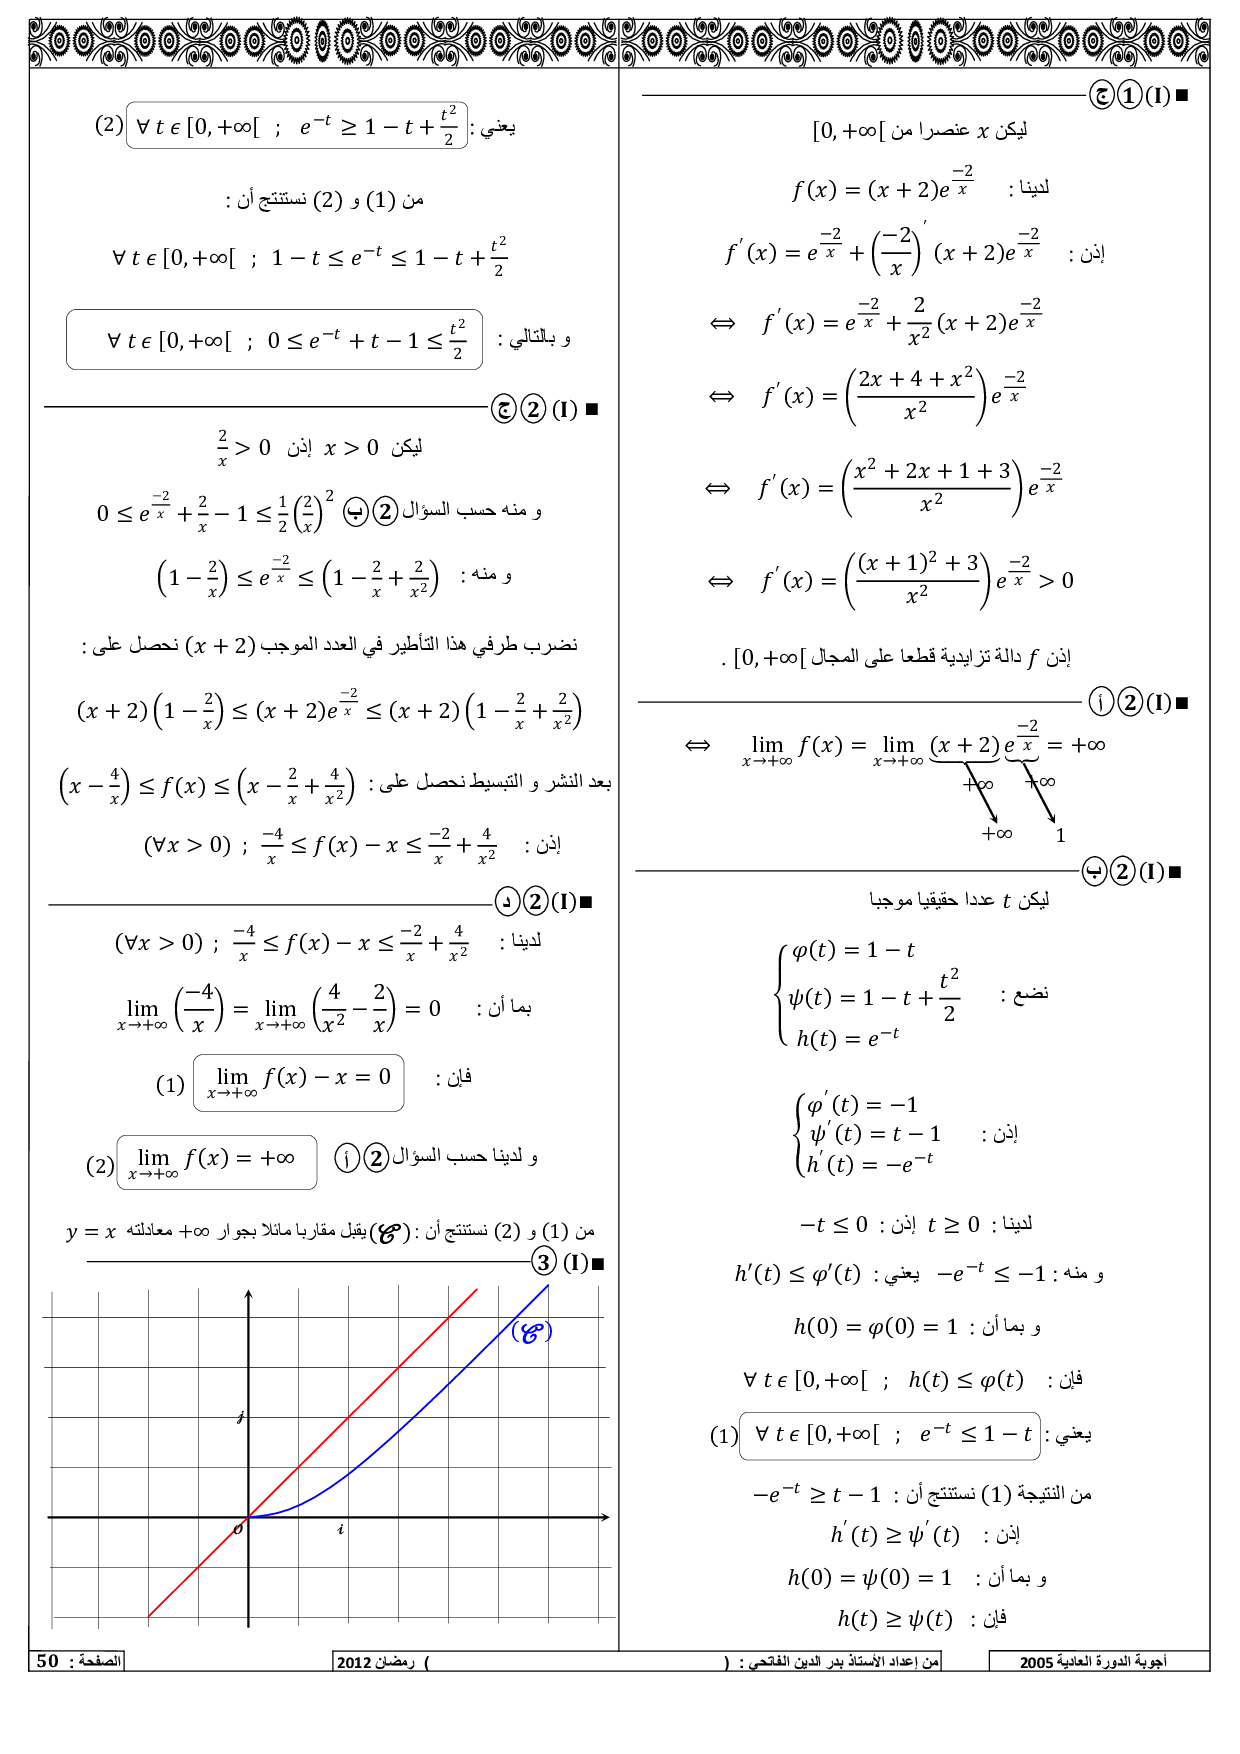 ■(I) 1 ج
ليكن x عنصرا من [0, +∞[
لدينا : f(x) = (x + 2)e^{\frac{-2}{x}}
إذن : f'(x) = e^{\frac{-2}{x}} + \left(\frac{-2}{x}\right)' (x + 2)e^{\frac{-2}{x}}
⇔ f'(x) = e^{\frac{-2}{x}} + \frac{2}{x^2}(x + 2)e^{\frac{-2}{x}}
⇔ f'(x) = \left(\frac{2x + 4 + x^2}{x^2}\right) e^{\frac{-2}{x}}
⇔ f'(x) = \left(\frac{x^2 + 2x + 1 + 3}{x^2}\right) e^{\frac{-2}{x}}
⇔ f'(x) = \left(\frac{(x + 1)^2 + 3}{x^2}\right) e^{\frac{-2}{x}} > 0
إذن f دالة تزايدية قطعا على المجال [0, +∞[ .
■(I) 2 أ
⇔ \lim_{x→+∞} f(x) = \lim_{x→+∞} (x + 2) e^{\frac{-2}{x}} = +∞
+∞ +∞
+∞ 1
■(I) 2 ب
ليكن t عددا حقيقيا موجبا
φ(t) = 1 − t
نضع : ψ(t) = 1 − t + \frac{t^2}{2}
h(t) = e^{−t}
φ'(t) = −1
إذن : ψ'(t) = t − 1
h'(t) = −e^{−t}
لدينا : t ≥ 0 إذن : −t ≤ 0
و منه : −e^{−t} ≤ −1 يعني : h'(t) ≤ φ'(t)
و بما أن : h(0) = φ(0) = 1
فإن : ∀ t ϵ [0, +∞[ ; h(t) ≤ φ(t)
يعني : ∀ t ϵ [0, +∞[ ; e^{−t} ≤ 1 − t (1)
من النتيجة (1) نستنتج أن : −e^{−t} ≥ t − 1
إذن : h'(t) ≥ ψ'(t)
و بما أن : h(0) = ψ(0) = 1
فإن : h(t) ≥ ψ(t)
يعني : ∀ t ϵ [0, +∞[ ; e^{−t} ≥ 1 − t + \frac{t^2}{2} (2)
من (1) و (2) نستنتج أن :
∀ t ϵ [0, +∞[ ; 1 − t ≤ e^{−t} ≤ 1 − t + \frac{t^2}{2}
و بالتالي : ∀ t ϵ [0, +∞[ ; 0 ≤ e^{−t} + t − 1 ≤ \frac{t^2}{2}
■ (I) 2 ج
ليكن x > 0 إذن \frac{2}{x} > 0
و منه حسب السؤال 2 ب 0 ≤ e^{\frac{-2}{x}} + \frac{2}{x} − 1 ≤ \frac{1}{2}\left(\frac{2}{x}\right)^2
و منه : \left(1 − \frac{2}{x}\right) ≤ e^{\frac{-2}{x}} ≤ \left(1 − \frac{2}{x} + \frac{2}{x^2}\right)
نضرب طرفي هذا التأطير في العدد الموجب (x + 2) نحصل على :
(x + 2)\left(1 − \frac{2}{x}\right) ≤ (x + 2)e^{\frac{-2}{x}} ≤ (x + 2)\left(1 − \frac{2}{x} + \frac{2}{x^2}\right)
بعد النشر و التبسيط نحصل على : \left(x − \frac{4}{x}\right) ≤ f(x) ≤ \left(x − \frac{2}{x} + \frac{4}{x^2}\right)
إذن : (∀x > 0) ; \frac{-4}{x} ≤ f(x) − x ≤ \frac{-2}{x} + \frac{4}{x^2}
■(I) 2 د
لدينا : (∀x > 0) ; \frac{-4}{x} ≤ f(x) − x ≤ \frac{-2}{x} + \frac{4}{x^2}
بما أن : \lim_{x→+∞} \left(\frac{-4}{x}\right) = \lim_{x→+∞} \left(\frac{4}{x^2} − \frac{2}{x}\right) = 0
فإن : \lim_{x→+∞} f(x) − x = 0 (1)
و لدينا حسب السؤال 2 أ \lim_{x→+∞} f(x) = +∞ (2)
من (1) و (2) نستنتج أن : (𝒞) يقبل مقاربا مائلا بجوار +∞ معادلته y = x
■(I) 3
(𝒞)
j
o
i
أجوبة الدورة العادية 2005
من إعداد الأستاذ بدر الدين الفاتحي : (
) رمضان 2012
الصفحة : 50